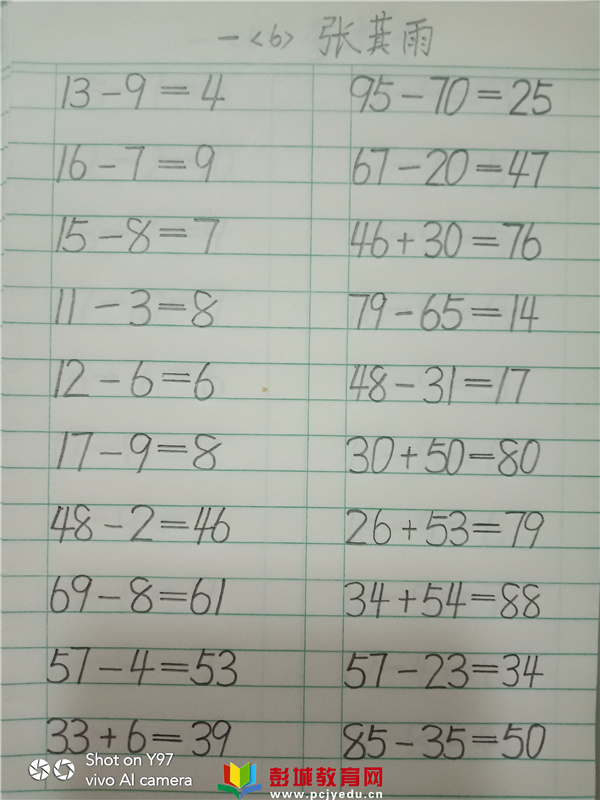 一<6> 张萁雨
13-9=4 95-70=25
16-7=9 67-20=47
15-8=7 46+30=76
11-3=8 79-65=14
12-6=6 48-31=17
17-9=8 30+50=80
48-2=46 26+53=79
69-8=61 34+54=88
57-4=53 57-23=34
33+6=39 85-35=50
Shot on Y97
vivo AI camera
彭城教育网
www.pcjyedu.cn